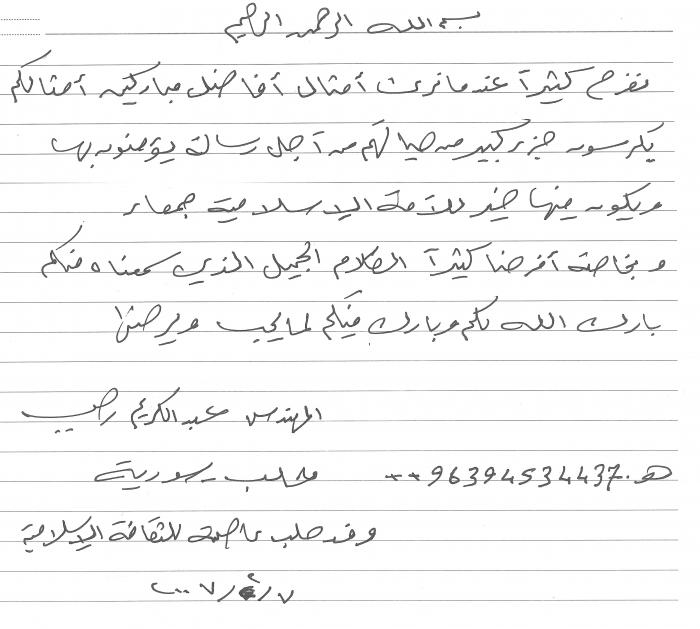 بسم الله الرحمن الرحيم
نفرح كثيراً عندما نرى أمثال أفاضل مباركين أمثالكم
يكرسون جزء كبير من حياتهم من أجل رسالة يؤمنون بها
ويكون فيها خير للأمة الإسلامية جمعاء
وبخاصة أفرحنا كثيراً الكلام الجميل الذي سمعناه منكم
بارك الله لكم وبارك فيكم لما يحب ويرضى
المهندس عبد الكريم
هـ. ++96394534437 حلب - سورية
وفد حلب عاصمة للثقافة الإسلامية
٧/٤/٢٠٠٧